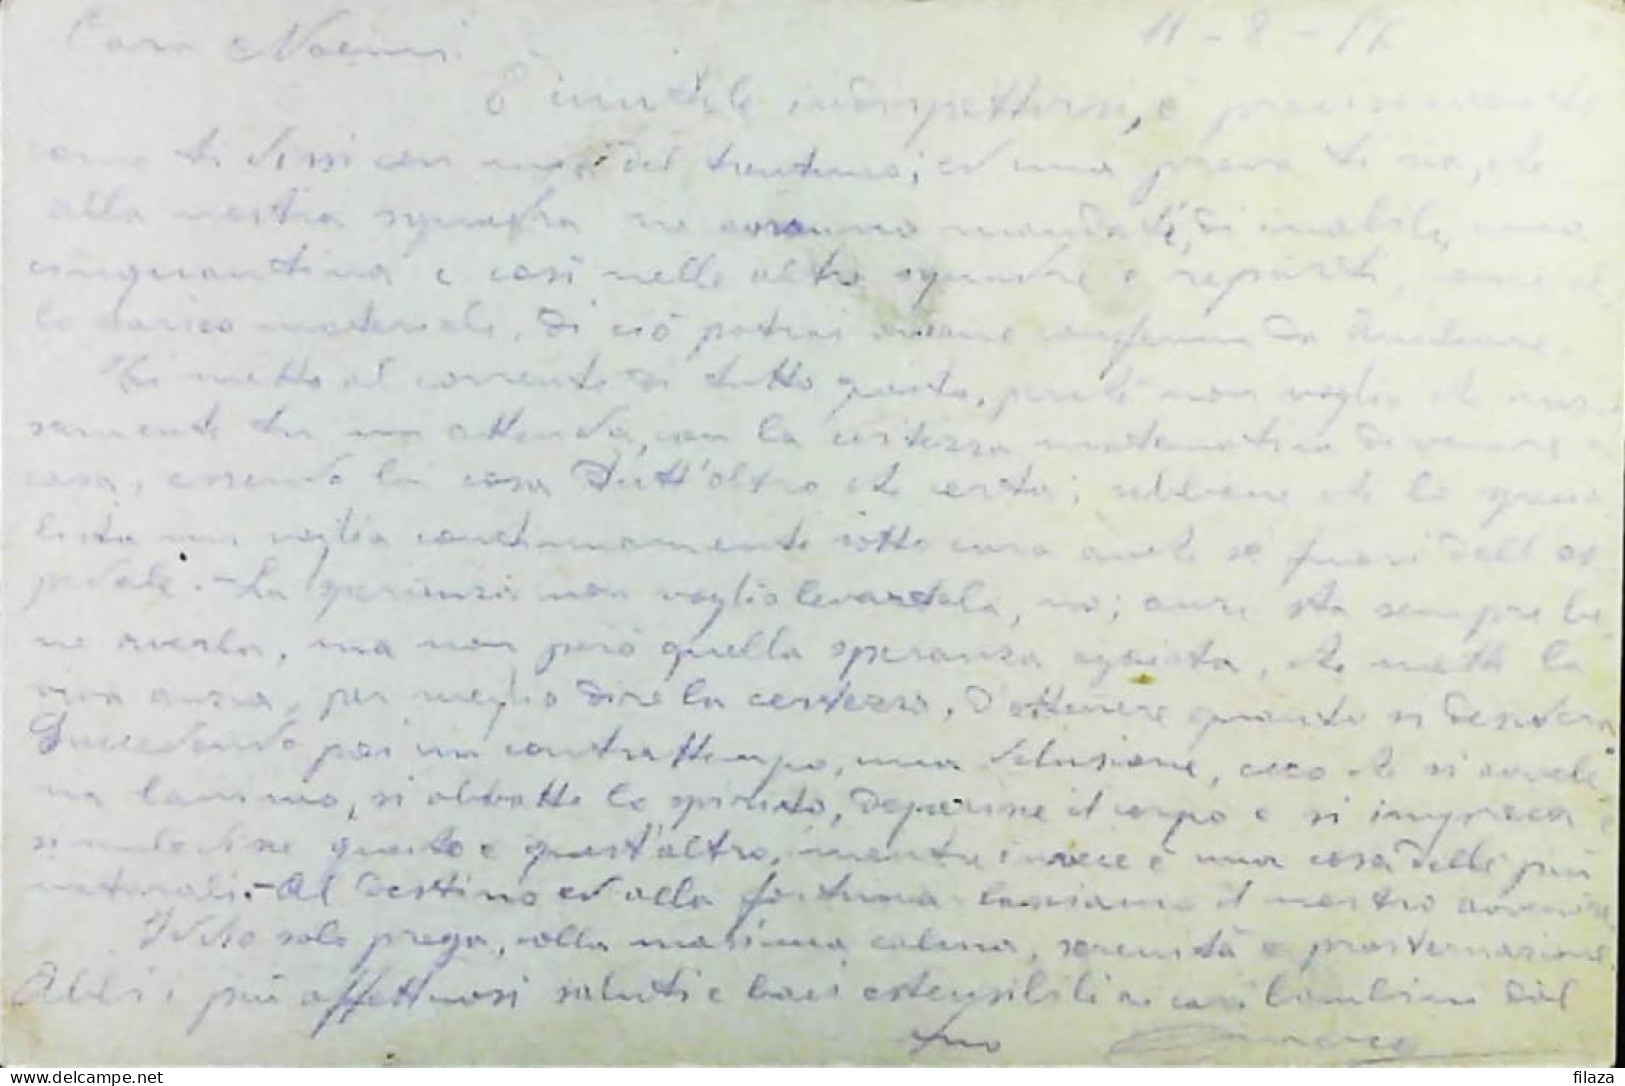 Cara Noemi.
11 - 8 - 17
È inutile indispettirsi, è precisamente
come ti dissi con mos. del trentuno; ed una prova ti sia, che
alla nostra squadra ne saranno mandati, di inabili, una
cinquantina e così nelle altre squadre e reparti, come al
lo carico materiale. Di ciò potrai avere conferma da
Ti metto al corrente di tutto questo, perchè non voglio che ansio
samente tu mi attenda, con la certezza matematica di venire a
casa, essendo la cosa tutt'altro che certa; sebbene che lo specia
lista mi voglia continuamente sotto cura anche se fuori dell'os
pedale. - La speranza non voglio levartela, no; anzi sta sempre be
ne averla, ma non però quella speranza egoista, che mette la
viva ansia, per meglio dire la certezza, d'ottenere quanto si desidera
Succedendo poi un contrattempo, una delusione, ecco che si avvele
na l'animo, si abbatte lo spirito, deperisce il corpo e si impreca e
si maledisce questo e quest'altro, mentre invece è una cosa delle più
naturali. - Al destino ed alla fortuna lasciamo il nostro avvenire
solo prego, colla massima calma, serenità e
Abbi i più affettuosi saluti e baci estensibili ai cari bambini dal
tuo